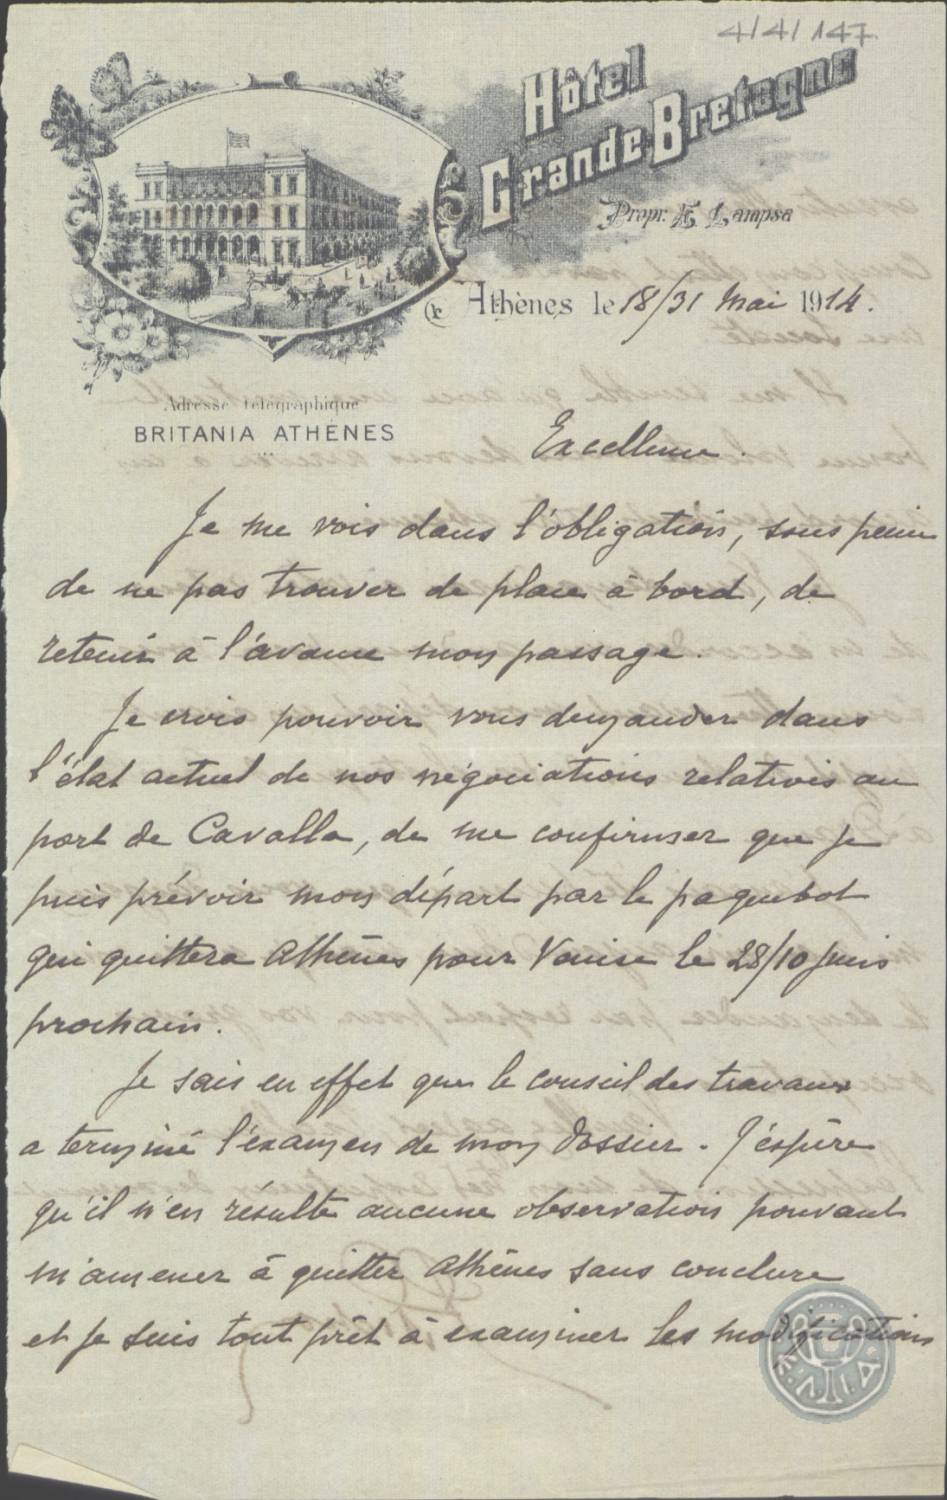 4/4/147.
Hôtel
Grande Bretagne
Propr. E. Lampsa
Athènes le 18/31 Mai 1914.
Adresse télégraphique
BRITANIA ATHÈNES
Excellence.
Je me vois dans l'obligation, sous peine
de ne pas trouver de place à bord, de
retenir à l'avance mon passage.
Je crois pouvoir vous demander dans
l'état actuel de nos négociations relatives au
port de Cavalla, de me confirmer que je
puis prévoir mon départ par le paquebot
qui quittera Athènes pour Venise le 28/10 Juin
prochain.
Je sais en effet que le conseil des travaux
a terminé l'examen de mon dossier. J'espère
qu'il n'en résulte aucune observation pouvant
m'amener à quitter Athènes sans conclure
et je suis tout prêt à examiner les modifications